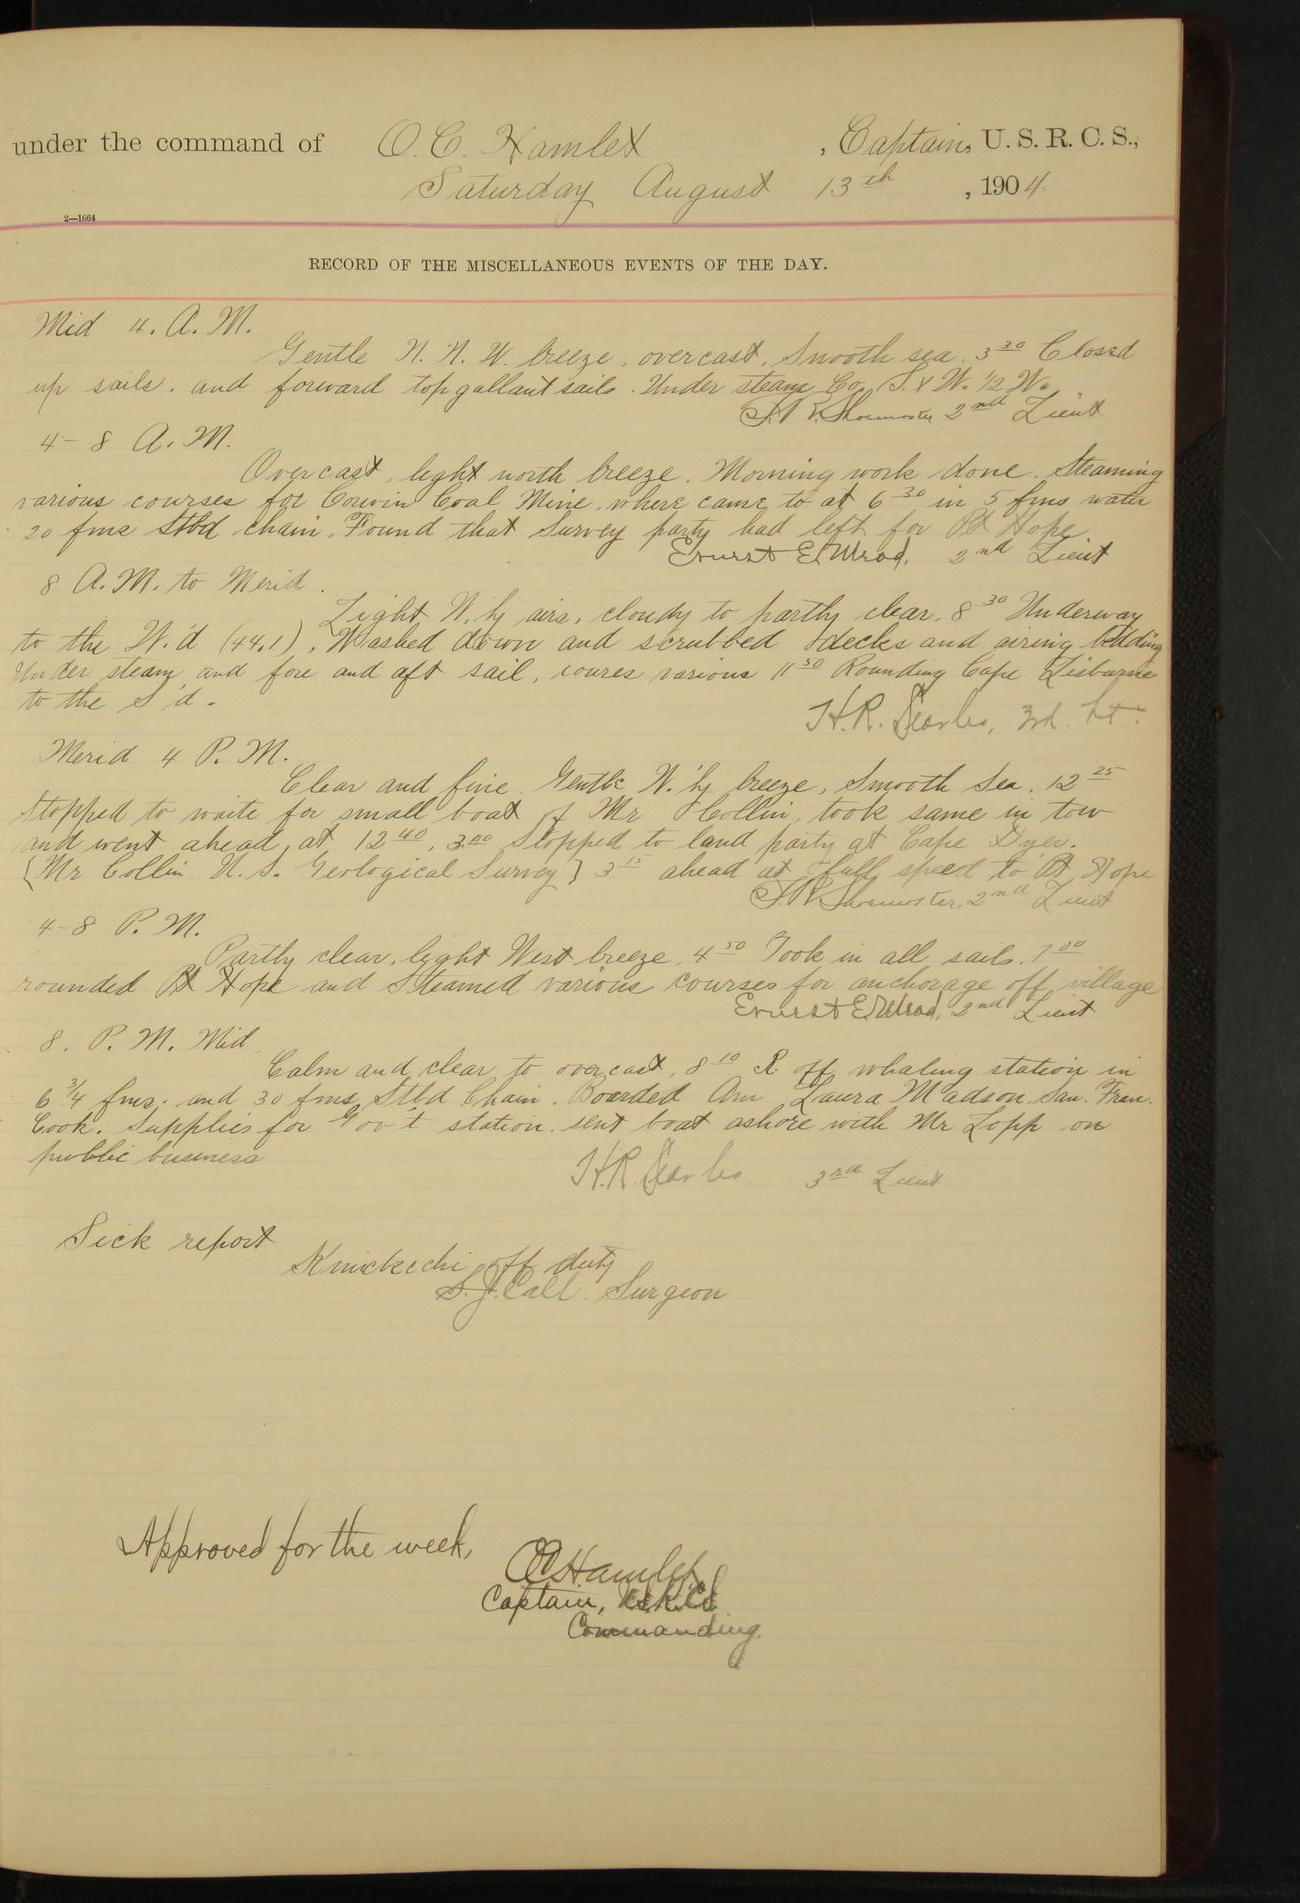 under the command of O. C. Hamlet , Captain, U. S. R. C. S.,
Saturday August 13th , 1904
2—1664
RECORD OF THE MISCELLANEOUS EVENTS OF THE DAY.
Mid 4. A. M.
Gentle N. N. W. breeze, overcast, Smooth sea. 3 30 Closed
up sails. and forward top gallant sails. Under steam Co. S. x W. 1/2 W.
2nd Lieut
4 - 8 A. M.
Overcast, light north breeze. Morning work done. Steaming
various courses for Corwin Coal Mine, where came to at 6 30 in 5 fms water
20 fms Stbd chain. Found that Survey party had left for Pt Hope
Ernest E. Mead, 2nd Lieut
8 A. M. to Merid.
Light, N.'ly airs, cloudy to partly clear. 8 30 Underway
to the W.'d (44.1). Washed down and scrubbed decks and airing bedding
Under steam, and fore and aft sail, coures various 11 50 Rounding Cape Lisburne
to the S'd.
H. R. Searles, 3rd. Lt.
Merid 4 P. M.
Clear and fine. Gentle N.'ly breeze, Smooth Sea. 12 25
Stopped to waite for small boat of Mr Collin, took same in tow
and went ahead, at 12 40, 3 00 Stopped to land party at Cape Dyer.
(Mr Collin U. S. Geological Survey) 3 15 ahead at full speed to Pt Hope
2nd Lieut
4-8 P. M.
Partly clear, light West breeze. 4 50 Took in all sails. 7 00
rounded Pt Hope and Steamed various courses for anchorage off village
Ernest E. Mead, 2nd Lieut
8. P. M. Mid
Calm and clear to overcast, 8 10 off whaling station in
6 3/4 fms. and 30 fms, Stbd Chain. Boarded Am Laura Madson. San. Fran.
Cook. Supplies for Gov't station. sent boat ashore with Mr Lopp on
public business
H. R. Searles 3rd Lieut
Sick report
off duty
S. J. Call. Surgeon
Approved for the week,
O C Hamlet
Captain, U.S.R.C.S.
Commanding.